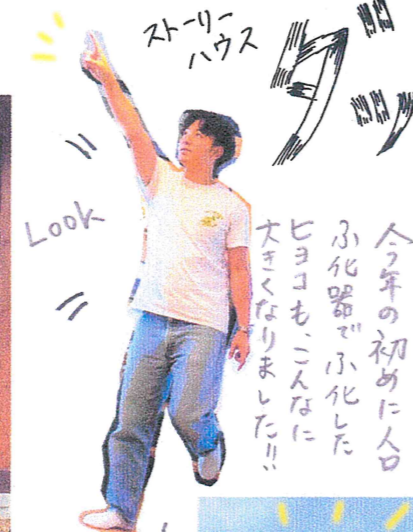 ストーリー
ハウス
ダッ
Look
今年の初めに人口
ふ化器でふ化した
ヒヨコも、こんなに
大きくなりました!!